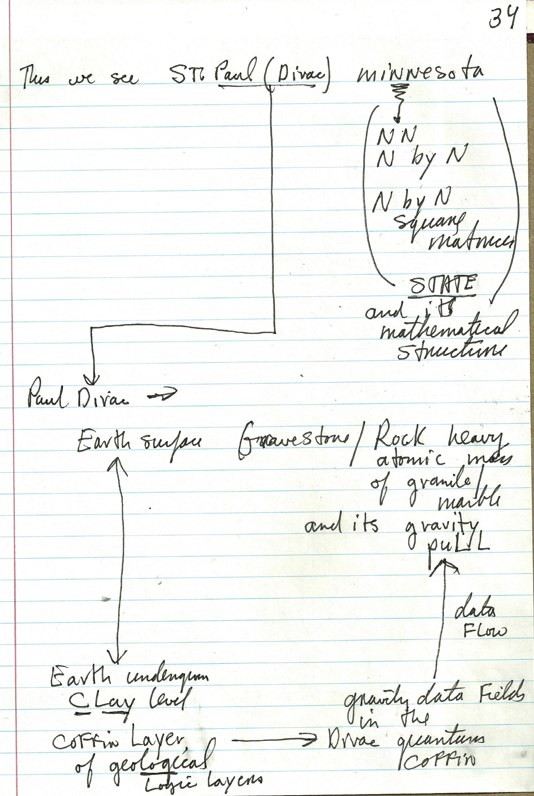 34
Thus we see ST. Paul (Dirac) minnesota
NN
N by N
N by N
square
matrices
STATE
and its
mathematical
structure
Paul Dirac →
Earth surface Gravestone / Rock heavy
atomic mass
of granite/
marble
and its gravity
puLL
data
FLow
Earth undergrun
CLay level
coffin Layer
of geological
Logic Layers
gravity data Fields
in the
Dirac quantum
coffin